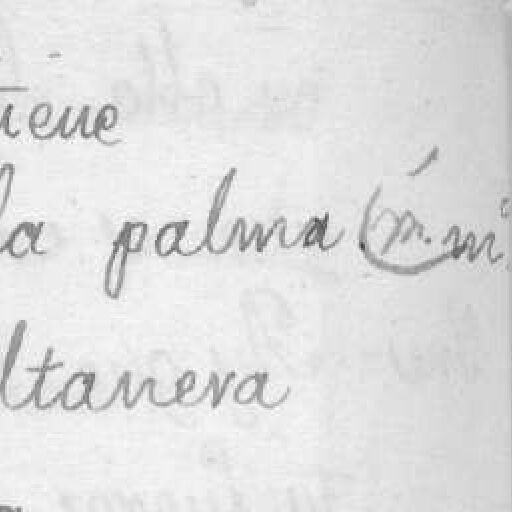 tiene
la palma
ltanera